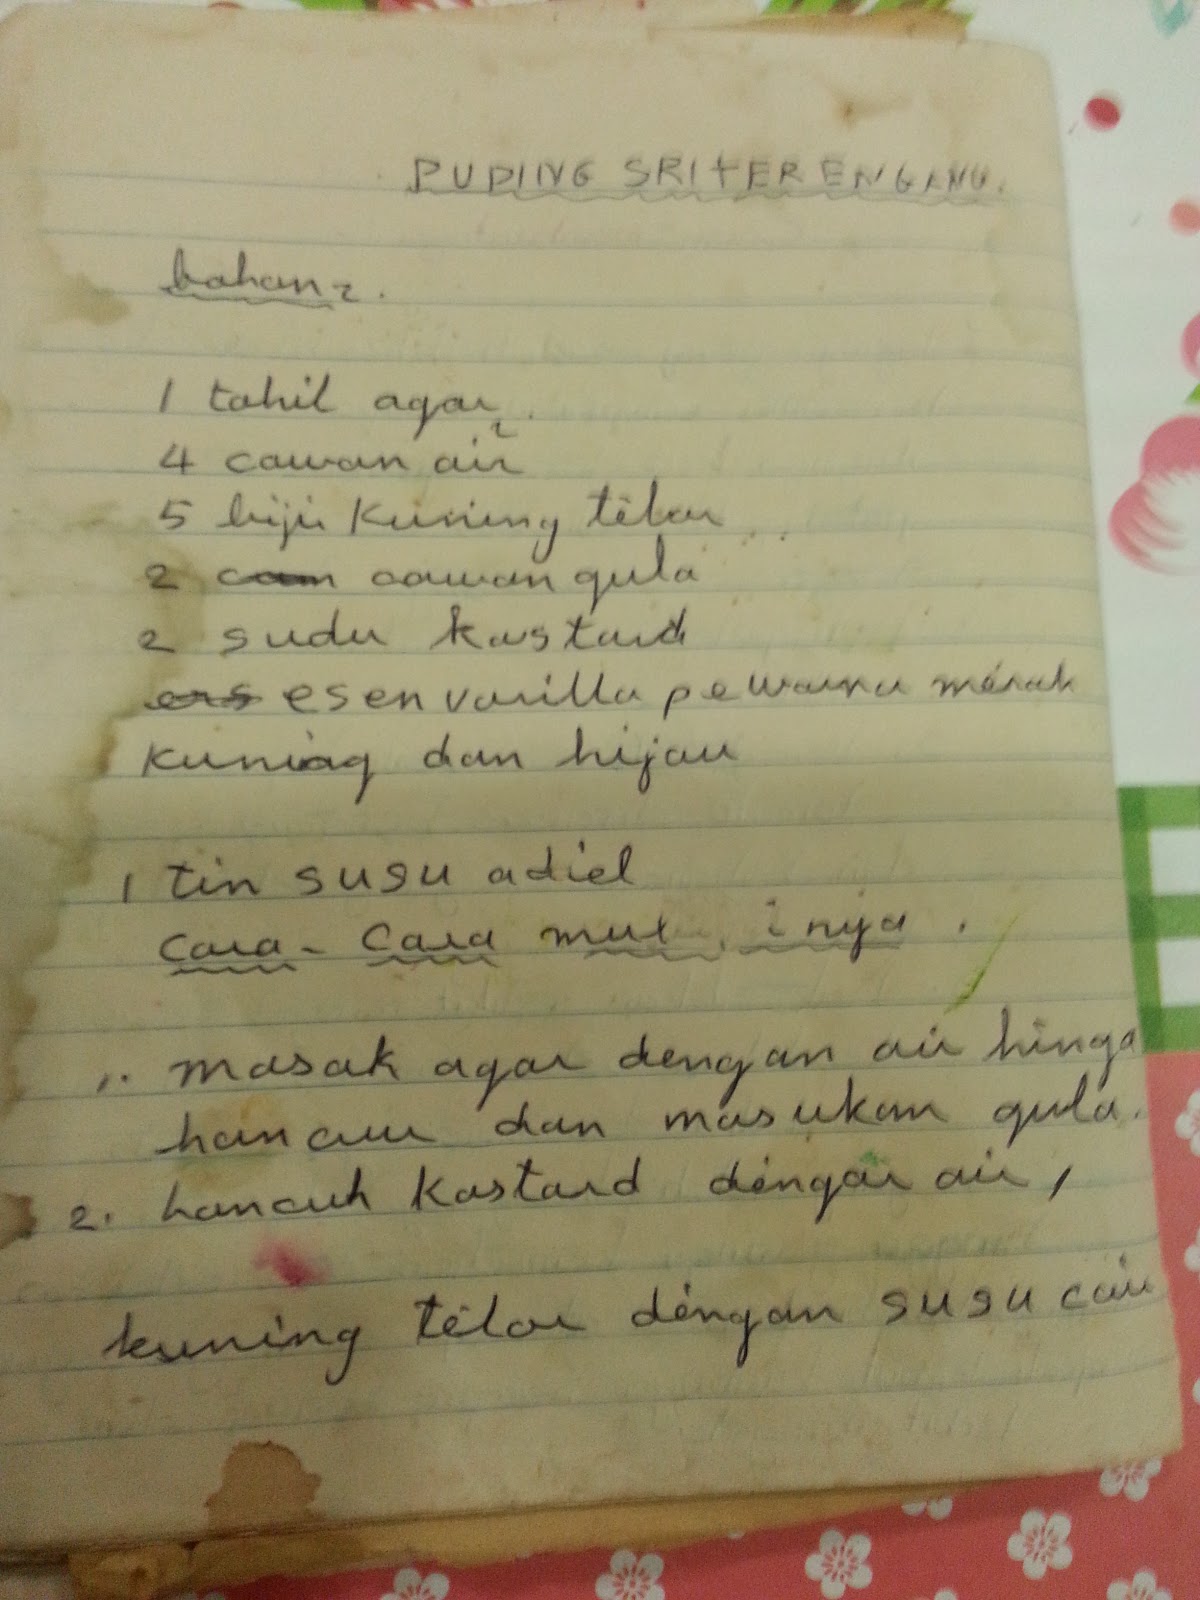 PUDING SRI TERENGANU.
bahan2.
1 tahil agar2.
4 cawan air
5 biji kuning telor
2 cawan gula
2 sudu kastard
esen vanilla pewarna merah
kuning dan hijau
1 tin susu adiel
cara-cara inya.
1. masak agar dengan air hinga
hancur dan masukan gula.
2. hancuh kastard dengar air,
kuning telor dengan susu cair